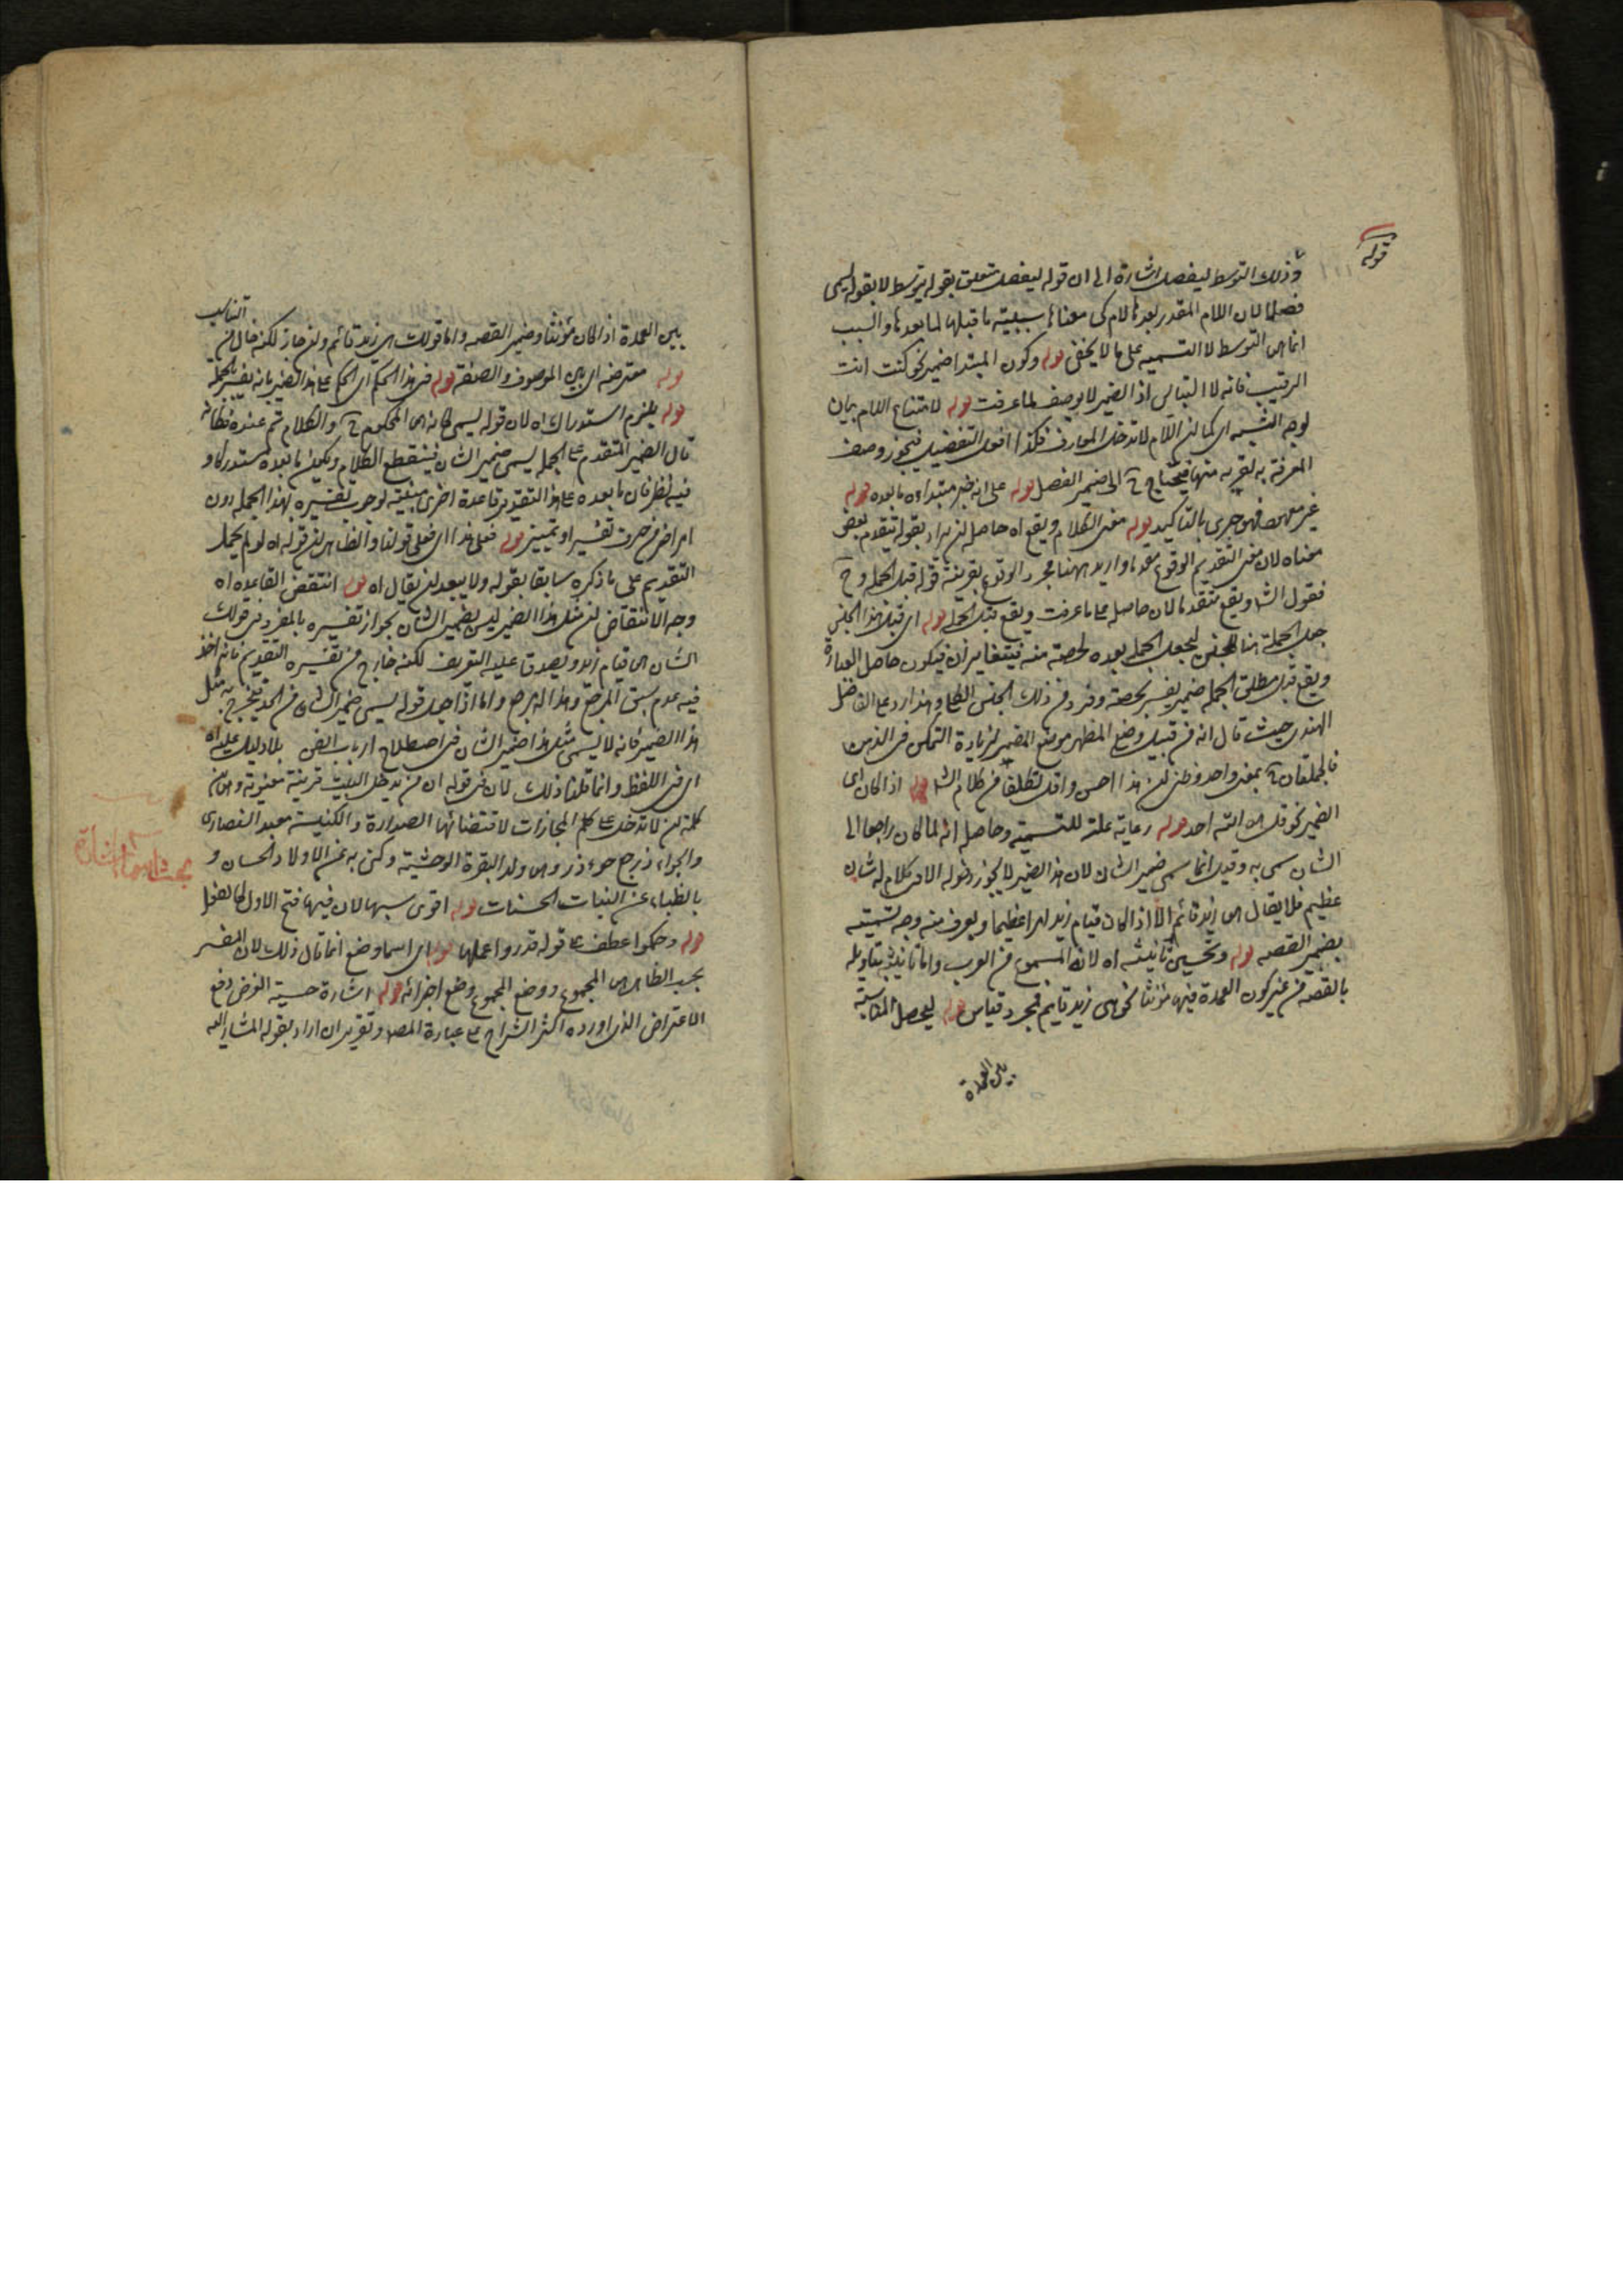 قوله
وذلك التوسط ليفصل اشارة الى ان قوله ليفصل متعلق بقوله يتوسط لا بقوله يسمى
فصلا لان اللام المقدر بعدها لام كى معناها سببية ما قبلها لما بعدها والسبب
انما هى التوسط لا التسمية على ما لا يخفى قوله وكون المبتدا ضمير نحو كنت انت
الرقيب فانه لا التباس اذ الضمير لا يوصف لما عرفت قوله لامتناع اللام بيان
لوجه الشبه اى كما ان اللام لا تدخل المعارف فكذا افعل التفضيل فيجوز وصف
المعرفة به لقربه منها فيحتاج ح الى ضمير الفصل قوله على انه خبر مبتداؤه ما بعده قوله
غير فهو جرى بالتاكيد قوله معنى الكلام ويقع اه حاصله ان يراد بقوله يتقدم بعض
معناه لان معنى التقديم الوقوع مقدما واريد ههنا مجرد الوقوع بقرينة قوله قبل الجملة وح
فقول الش ويقع متقدما لان حاصله على ما عرفت ويقع قبل الجملة قوله اى قبل هذا الجنس
جعل الجملة هنا للجنس ليجعل الجملة بعده لحصة منه فيتغايران فيكون حاصل العبارة
ويقع قبل مطلق الجملة ضمير يفسر بحصة وفرد من ذلك الجنس الكلى وهذا رد على الفاضل
الهندى حيث قال انه من قبيل وضع المظهر موضع المضمر لزيادة التمكن فى الذهن
فالجملتان ح بمعنى واحد وظنى ان هذا احسن واقل تكلفا من كلام الش قوله اذا كان اى
الضمير نحو قل هو الله احد قوله رعاية علة للتسمية وحاصله انه لما كان راجعا الى
الشان سمى به وقيل انما سمى ضمير الشان لان هذا الضمير لا يجوز دخوله الا فى كلام له شان
عظيم فلا يقال هو زيد قائم الا اذا كان قيام زيد امرا عظيما ويعرف منه وجه تسميته
بضمير القصه قوله ويحسن تانيثه اه لانه المسموع من العرب واما تانيثه بتاويله
بالقصه من غير كون العمدة فيها مؤنثا نحو هى زيد قايم فمجرد قياس قوله ليحصل المناسبة
بين العمدة
التناسب
بين العمدة اذا كان مؤنثا وضمير القصه واما قولك هى زيد قائم وان جاز لكنه خال من
قوله معترضه اى بين الموصوف والصفة قوله فى هذا الحكم اى الحكم على هذا الضمير بانه يفسر بالجملة
قوله يلزم استدراك اه لان قوله يسمى كانه هى المحكوم ح والكلام تم عنده فكانه
قال الضمير المتقدم على الجملة يسمى ضمير الشان فينقطع الكلام ويكون ما بعده مستدركا و
فيه نظر فان ما بعده على هذا التقدير قاعدة اخرى مبينة لوجوب تفسيره بهذا الجملة دون
امر اخر من حرف تفسير او تمييز قوله فعلى هذا اى فعلى قولنا والظاهر ان قوله اه لو لم يحمل
التقديم على ما ذكره سابقا بقوله ولا يبعد ان يقال اه قوله انتقض القاعده اه
وجه الانتقاض ان مثل هذا الضمير ليس بضمير الشان بجواز تفسيره بالمفرد فى قولك
الشان هو قيام زيد ويصدق عليه التعريف لكنه خارج من تفسيره التقديم فانه اخذ
فيه عدم سبق المرجع وهذا المرجع واما اذا جعل قوله يسمى ضمير الشان من الحد فيخرج به مثل
هذا الضمير فانه لا يسمى مثل هذا ضمير الشان فى اصطلاح ارباب الفن بلا دليل عليه اه
اى فى اللفظ وانما قلنا ذلك لان فى قوله ان من يدخل البيت قرينة معنوية وهى ان
كلمة ان لا تدخل على كلم المجازات لاقتضائها الصدارة والكنيسة معبد النصارى
والجواذر جمع جوذر وهى ولد البقرة الوحشية وكنى به عن الاولاد الحسان و
بالظباء عن البنات الحسنات قوله اقوى سببها لان فيها فتح الاول كالفعل
قوله وحكموا عطف على قوله قدروا عملها قوله اى اسما وضع انما قال ذلك لان المفسر
بحسب الظاهر هى المجموع ووضع المجموع وضع اجزائه قوله اشارة حسية الغرض دفع
الاعتراض الذى اورده اكثر الشراح على عبارة المصـ وتقريره ان اراد بقوله المشار اليه
بحث اسماء الاشارة